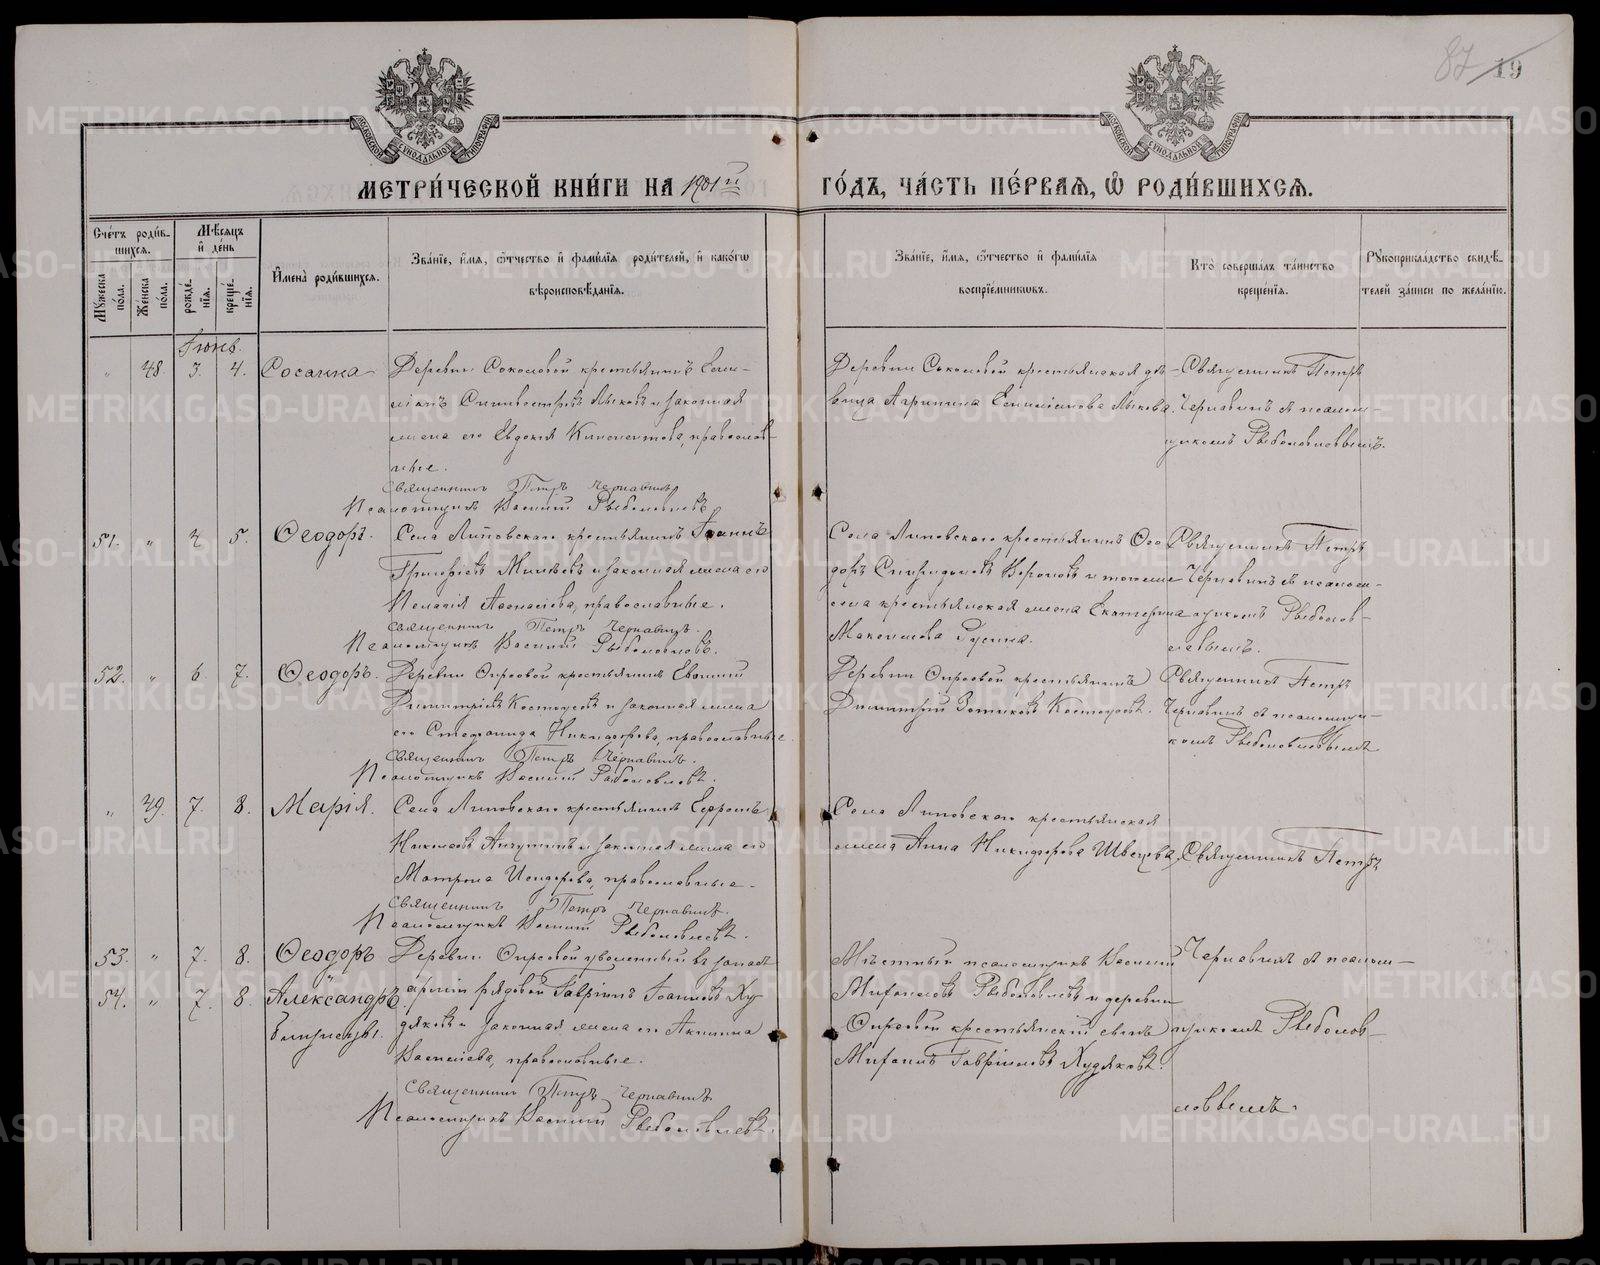 87 19
МОСКОВСКОЙ СѴНОДАЛЬНОЙ ТИПОГРАФІИ
МОСКОВСКОЙ СѴНОДАЛЬНОЙ ТИПОГРАФІИ
МЕТРИ́ЧЕСКОЙ КНИ́ГИ НА 1901й ГО́ДЪ, ЧА́СТЬ ПЕ́РВАѦ, Ѡ РОДИ́ВШИХСѦ.
Сче́тъ роди́в-
шихсѧ.
Мѣ́сѧцъ
и҆ де́нь
Мꙋ́жеска по́ла.
Же́нска по́ла.
рожде́-нїѧ.
креще́-нїѧ.
И҆мена̀ роди́вшихсѧ.
Зва́нїе, и҆́мѧ, ѻ҆́тчество и҆ фами́лїѧ роди́телей, и҆ како́гѡ
вѣроисповѣ́данїѧ.
Зва́нїе, и҆́мѧ, ѻ҆́тчество и҆ фами́лїѧ
воспрїе́мникѡвъ.
Кто̀ соверша́лъ та́инство
креще́нїѧ.
Рꙋкоприкла́дство свидѣ́-
телей за́писи по жела́нїю.
Іюнь.
„ 48 3. 4. Сосанна Деревни Соколовой крестьянинъ Емели-
ліанъ Сильвестровъ Лыковъ и законная
жена его Евдокія Иннокентова, православ-
ные.
Священникъ Петръ Чернавинъ
Псаломщикъ Василій Рыболовлевъ
Деревни Соколовой крестьянская дѣ-
вица Агрипина Емиліанова Лыкова.
Священникъ Петръ
Чернавинъ съ псалом-
щикомъ Рыболовлевымъ.
51. „ 4 5. Ѳеодоръ. Села Липовскаго крестьянинъ Іоаннъ
Григоріевъ Минѣевъ и законная жена его
Пелагія Аѳанасіева, православные.
Священникъ Петръ Чернавинъ.
Псаломщикъ Василій Рыболовлевъ.
Села Липовскаго крестьянинъ Ѳео-
доръ Спиридоновъ Вороновъ и тогоже
села крестьянская жена Екатерина
Максимова Русина.
Священникъ Петръ
Чернавинъ съ псалом-
щикомъ Рыболов-
левымъ.
52. „ 6 7. Ѳеодоръ. Деревни крестьянинъ Евѳимій
Димитріевъ Костоусовъ и законная жена
его Стефанида Никифорова, православные.
Священникъ Петръ Чернавинъ.
Псаломщикъ Василій Рыболовлевъ.
Деревни крестьянинъ
Димитрій Костоусовъ.
Священникъ Петръ
Чернавинъ съ псаломщи-
комъ Рыболовлевымъ
„ 49. 7. 8. Марія. Села Липовскаго крестьянинъ Ефремъ
Николаевъ и законная жена его
Матрона Исидорова, православные.
Священникъ Петръ Чернавинъ.
Псаломщикъ Василій Рыболовлевъ.
Села Липовскаго крестьянская
жена Анна Никифорова Швецова.
Священникъ Петръ
53. „ 7. 8. Ѳеодоръ
54. „ 7. 8. Александръ
близнецы.
Деревни уволенный въ запасъ
арміи рядовой Гавріилъ Іоанновъ Ху-
дяковъ и законная жена его Акилина
Василіева, православные.
Священникъ Петръ Чернавинъ
Псаломщикъ Василій Рыболовлевъ.
Мѣстный псаломщикъ Василій
Рыболовлевъ и деревни
крестьянскій сынъ
Михаилъ Гавріиловъ Худяковъ.
Чернавинъ съ псалом-
щикомъ Рыболов-
левымъ.
METRIKI.GASO-URAL.RU